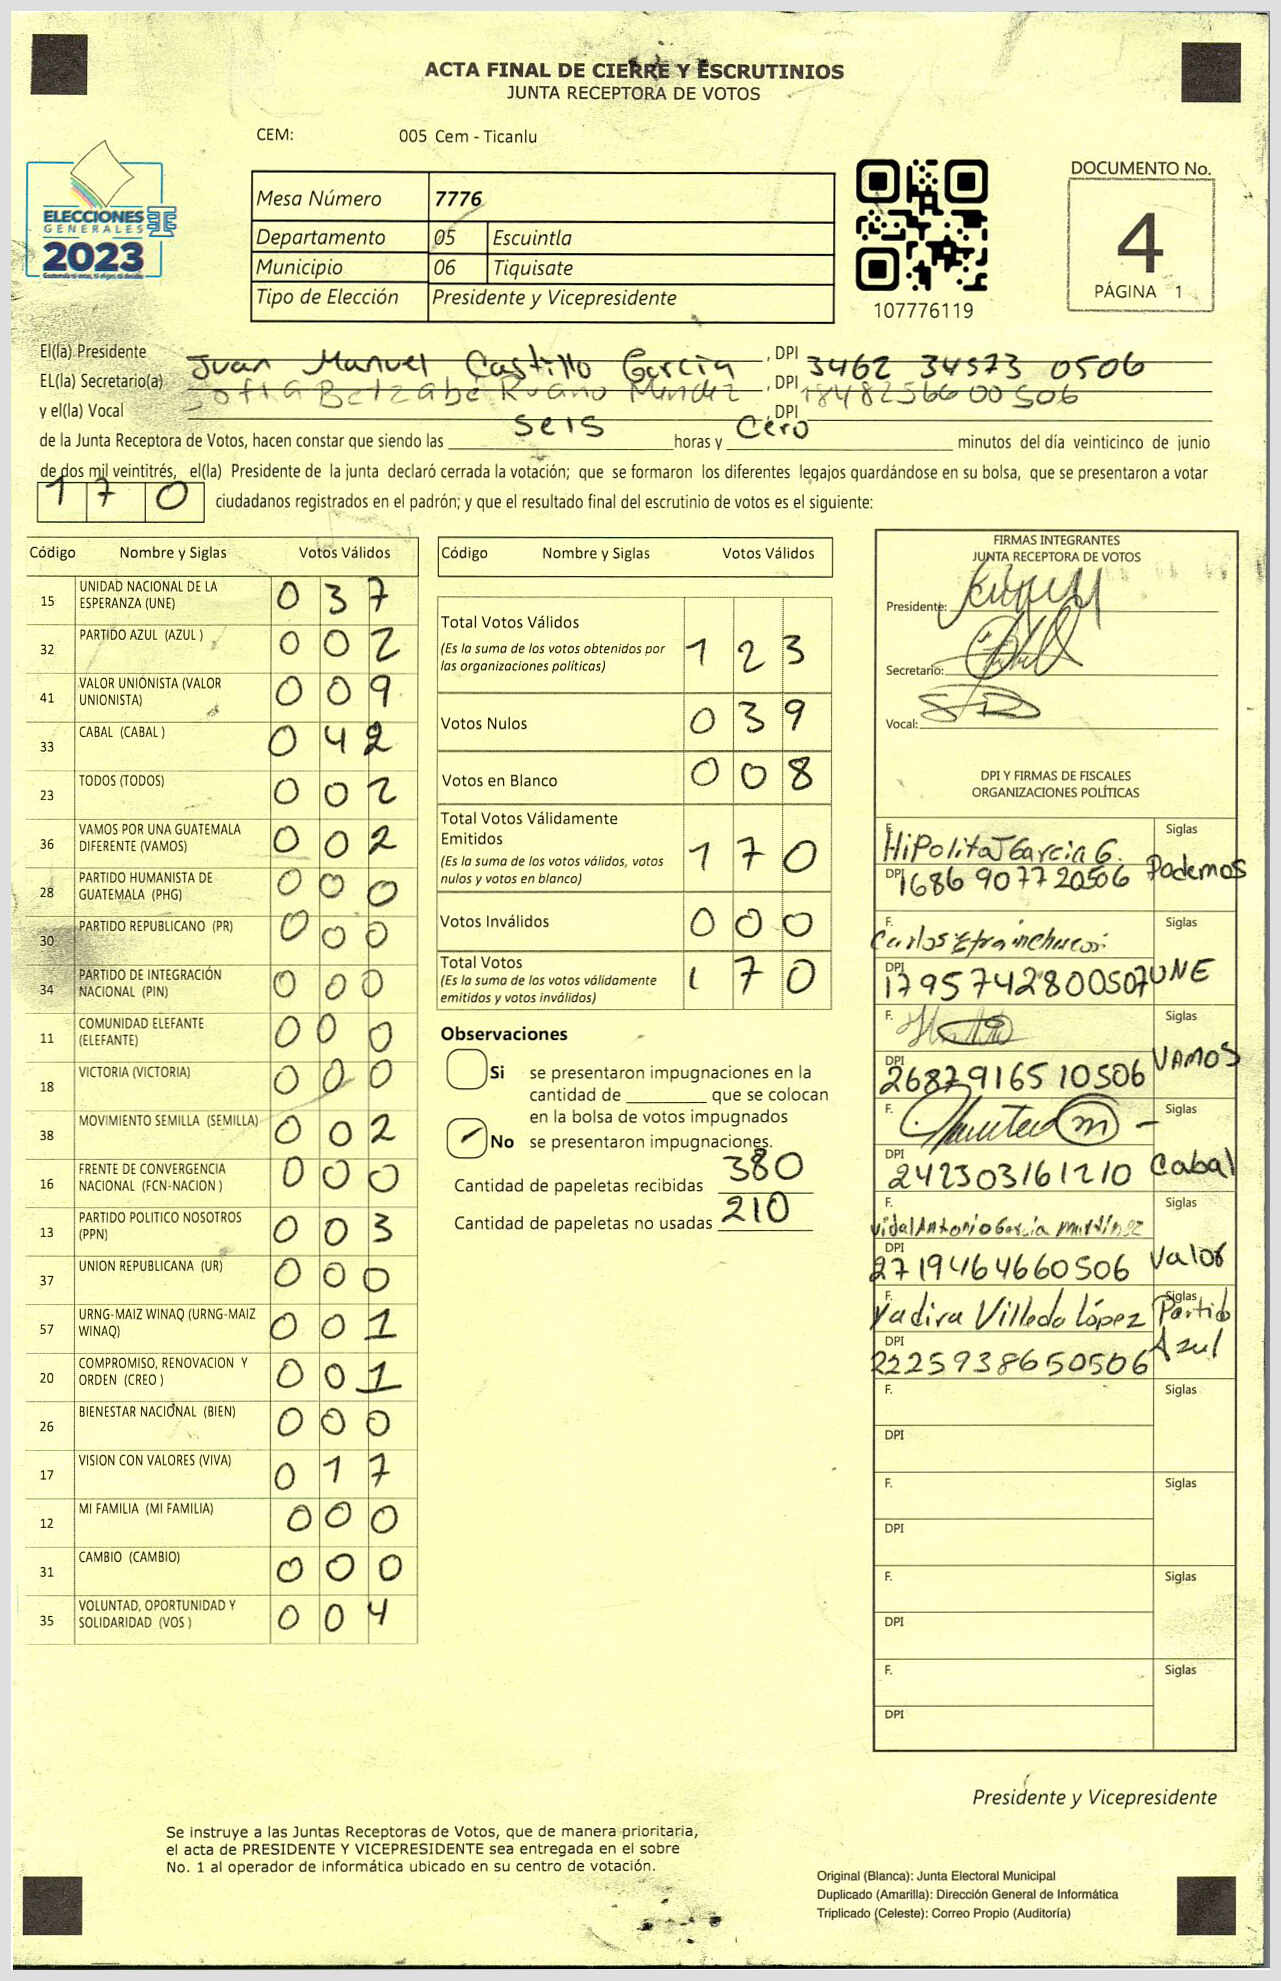 ACTA FINAL DE CIERRE Y ESCRUTINIOS
JUNTA RECEPTORA DE VOTOS
CEM: 005 Cem - Ticanlu
ELECCIONES
GENERALES
2023
Mesa Número 7776
Departamento 05 Escuintla
Municipio 06 Tiquisate
Tipo de Elección Presidente y Vicepresidente
107776119
DOCUMENTO No.
4
PÁGINA 1
El(la) Presidente Juan Manuel Castillo García, DPI 3462 34573 0506
EL(la) Secretario(a) Sofia Betzabé Ruano Mendez, DPI 1848256600506
y el(la) Vocal , DPI
de la Junta Receptora de Votos, hacen constar que siendo las seis horas y cero minutos del día veinticinco de junio
de dos mil veintitrés, el(la) Presidente de la junta declaró cerrada la votación; que se formaron los diferentes legajos quardándose en su bolsa, que se presentaron a votar
170 ciudadanos registrados en el padrón; y que el resultado final del escrutinio de votos es el siguiente:
Código Nombre y Siglas Votos Válidos
15 UNIDAD NACIONAL DE LA ESPERANZA (UNE) 037
32 PARTIDO AZUL (AZUL ) 002
41 VALOR UNIONISTA (VALOR UNIONISTA) 009
33 CABAL (CABAL ) 042
23 TODOS (TODOS) 002
36 VAMOS POR UNA GUATEMALA DIFERENTE (VAMOS) 002
28 PARTIDO HUMANISTA DE GUATEMALA (PHG) 000
30 PARTIDO REPUBLICANO (PR) 000
34 PARTIDO DE INTEGRACIÓN NACIONAL (PIN) 000
11 COMUNIDAD ELEFANTE (ELEFANTE) 000
18 VICTORIA (VICTORIA) 000
38 MOVIMIENTO SEMILLA (SEMILLA) 002
16 FRENTE DE CONVERGENCIA NACIONAL (FCN-NACION ) 000
13 PARTIDO POLITICO NOSOTROS (PPN) 003
37 UNION REPUBLICANA (UR) 000
57 URNG-MAIZ WINAQ (URNG-MAIZ WINAQ) 001
20 COMPROMISO, RENOVACION Y ORDEN (CREO ) 001
26 BIENESTAR NACIONAL (BIEN) 000
17 VISION CON VALORES (VIVA) 017
12 MI FAMILIA (MI FAMILIA) 000
31 CAMBIO (CAMBIO) 000
35 VOLUNTAD, OPORTUNIDAD Y SOLIDARIDAD (VOS ) 004
Código Nombre y Siglas Votos Válidos
Total Votos Válidos 123
(Es la suma de los votos obtenidos por las organizaciones políticas)
Votos Nulos 039
Votos en Blanco 008
Total Votos Válidamente Emitidos 170
(Es la suma de los votos válidos, votos nulos y votos en blanco)
Votos Inválidos 000
Total Votos 170
(Es la suma de los votos válidamente emitidos y votos inválidos)
Observaciones
Si se presentaron impugnaciones en la
cantidad de ________ que se colocan
en la bolsa de votos impugnados
No se presentaron impugnaciones.
Cantidad de papeletas recibidas 380
Cantidad de papeletas no usadas 210
FIRMAS INTEGRANTES
JUNTA RECEPTORA DE VOTOS
Presidente:
Secretario:
Vocal:
DPI Y FIRMAS DE FISCALES
ORGANIZACIONES POLÍTICAS
F. Hipolita J Garcia G. Siglas
DPI 1686 90772 0506 Podemos
F. Carlos Efrain Siglas
DPI 1795742800507 UNE
F. Siglas
DPI 2687916510506 VAMOS
F. Siglas
DPI 242303161210 Cabal
F. Vidal Antonio Garcia Martínez Siglas
DPI 2719464660506 Valor
F. Yadira Villeda López Siglas Partido
DPI 2225938650506 Azul
F. Siglas
DPI
F. Siglas
DPI
F. Siglas
DPI
F. Siglas
DPI
Presidente y Vicepresidente
Se instruye a las Juntas Receptoras de Votos, que de manera prioritaria,
el acta de PRESIDENTE Y VICEPRESIDENTE sea entregada en el sobre
No. 1 al operador de informática ubicado en su centro de votación.
Original (Blanca): Junta Electoral Municipal
Duplicado (Amarilla): Dirección General de Informática
Triplicado (Celeste): Correo Propio (Auditoría)